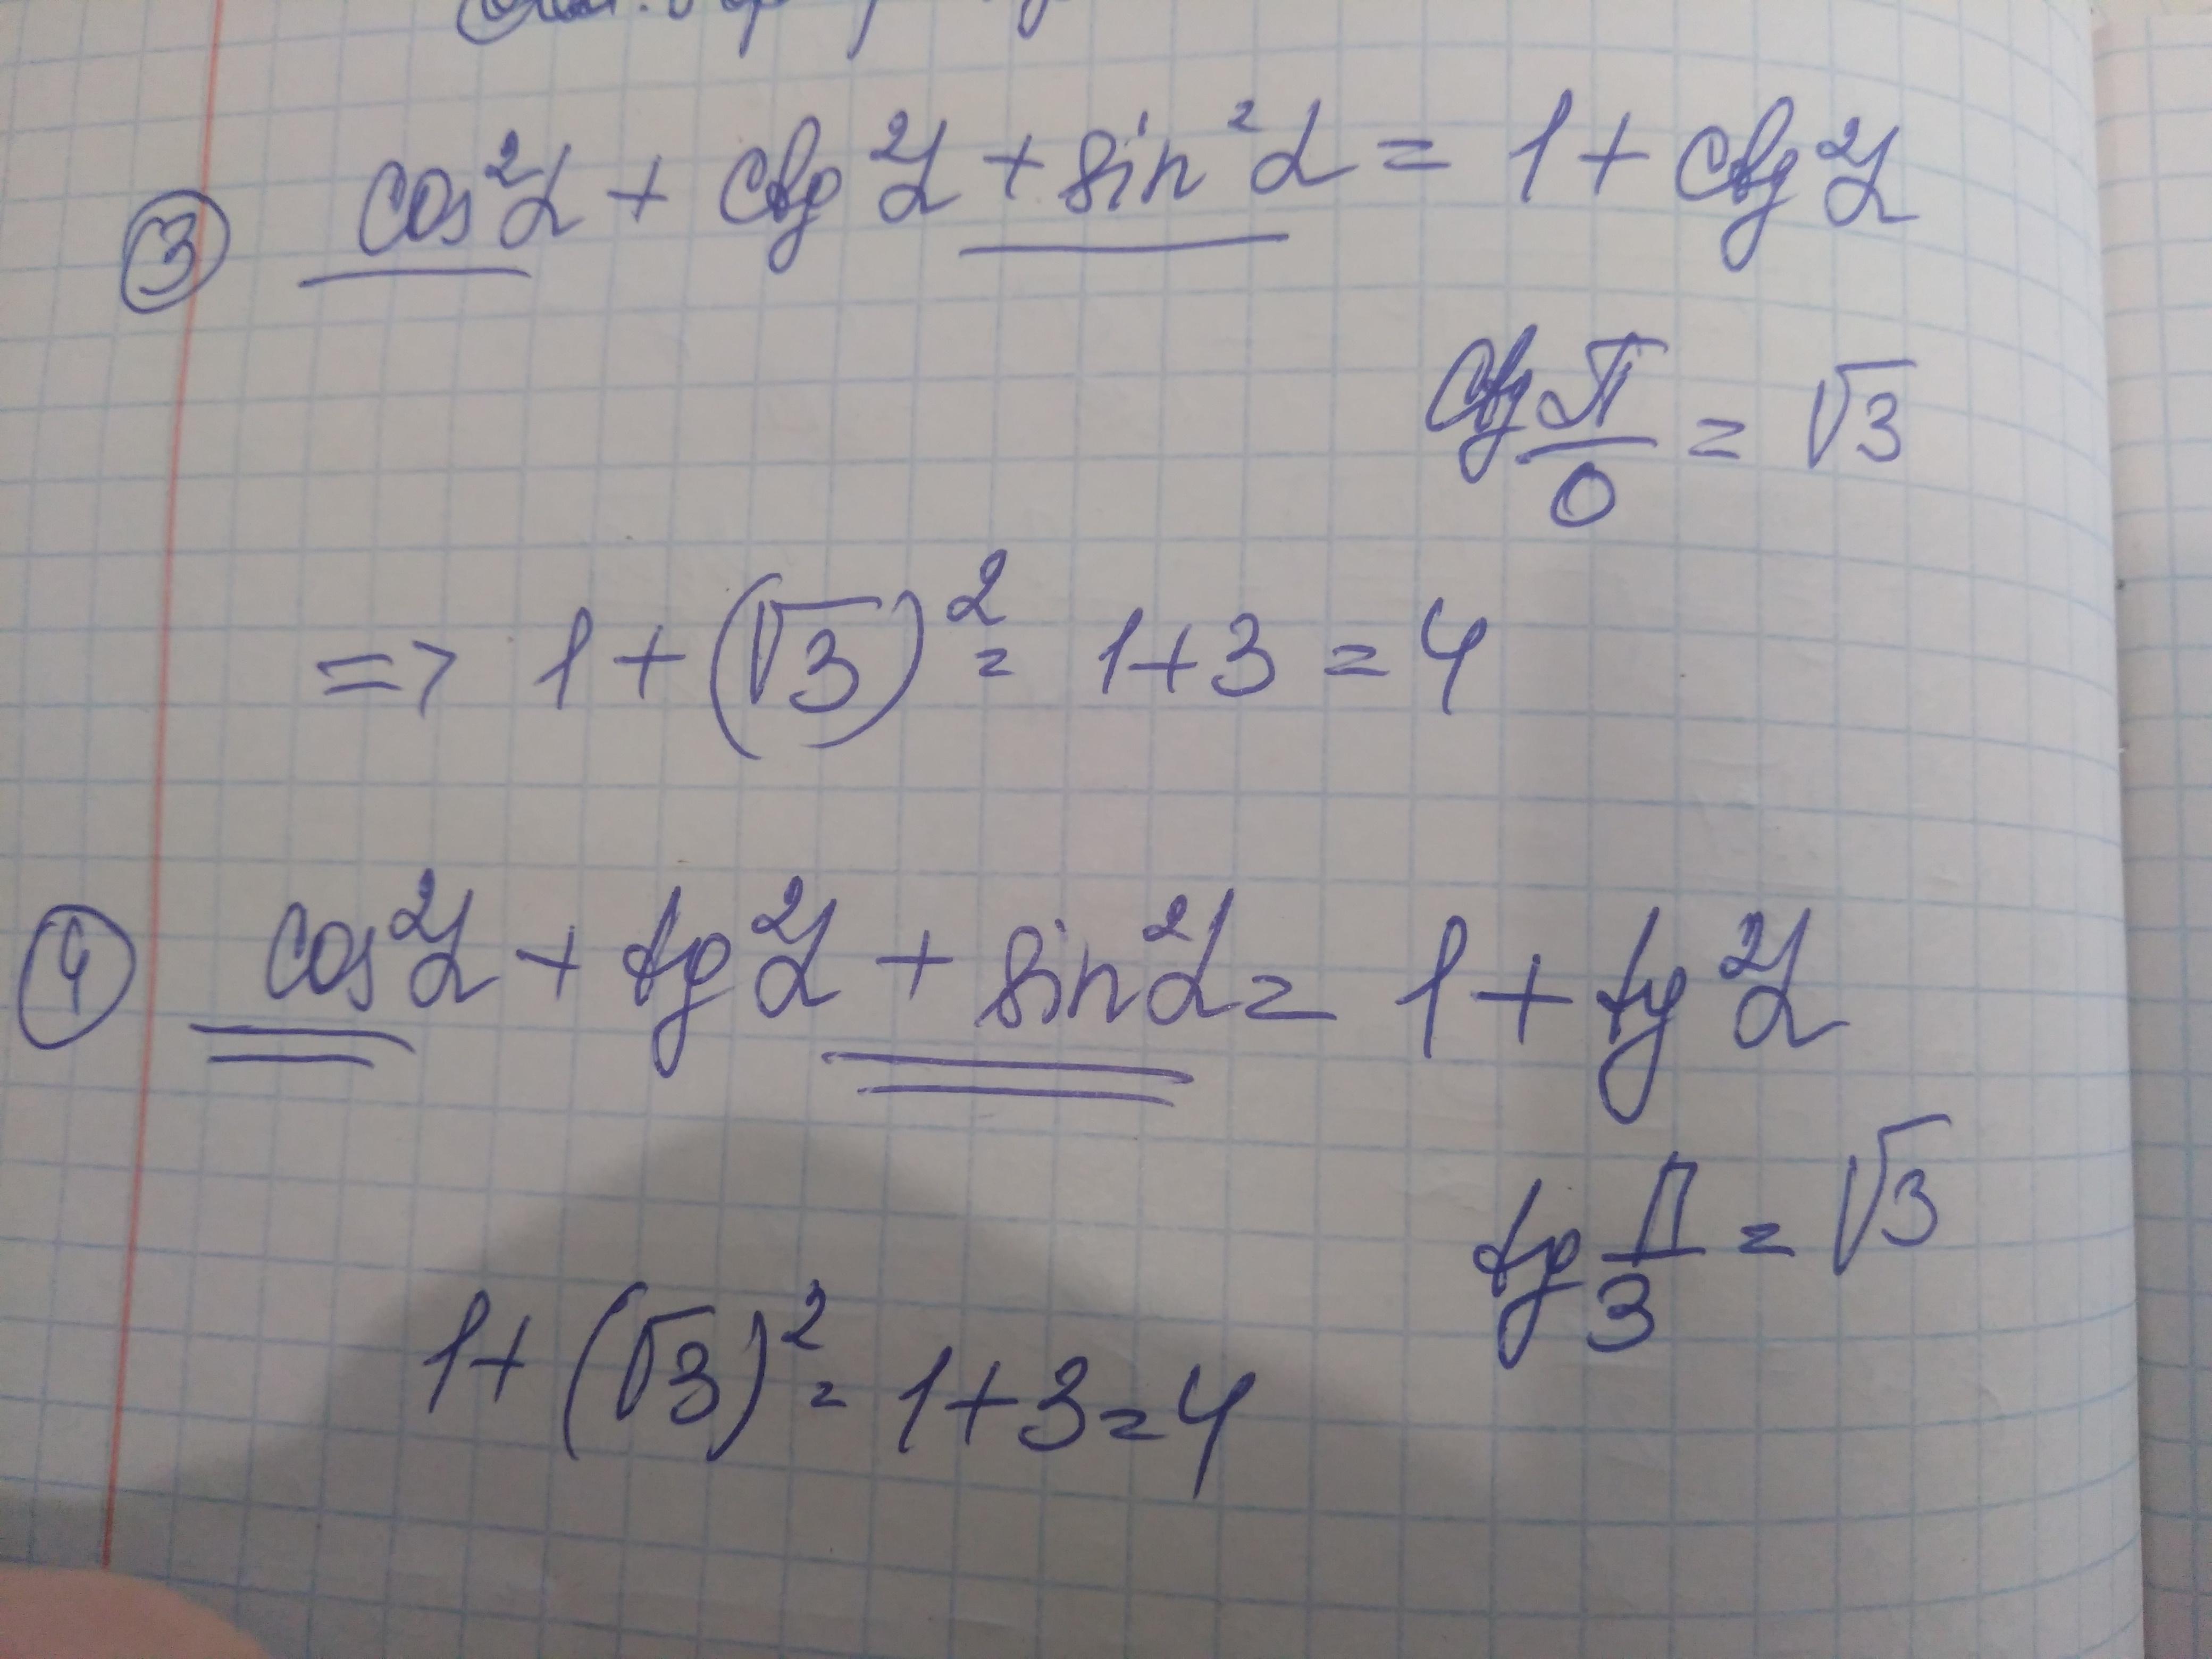 ③ cos²α + ctg²α + sin²α = 1 + ctg²α
ctg π/0 = √3
=> 1 + (√3)² = 1 + 3 = 4
④ cos²α + tg²α + sin²α = 1 + tg²α
tg π/3 = √3
1 + (√3)² = 1 + 3 = 4